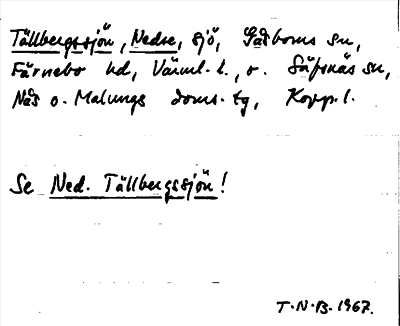 Tällbergssjön, Nedre, sjö, Gåsborns sn,
Färnebo hd, Värml. l., o. Säfsnäs sn,
Nås o. Malungs doms. tg, Kopp. l.
Se Ned. Tällbergssjön!
T.N.B. 1967.